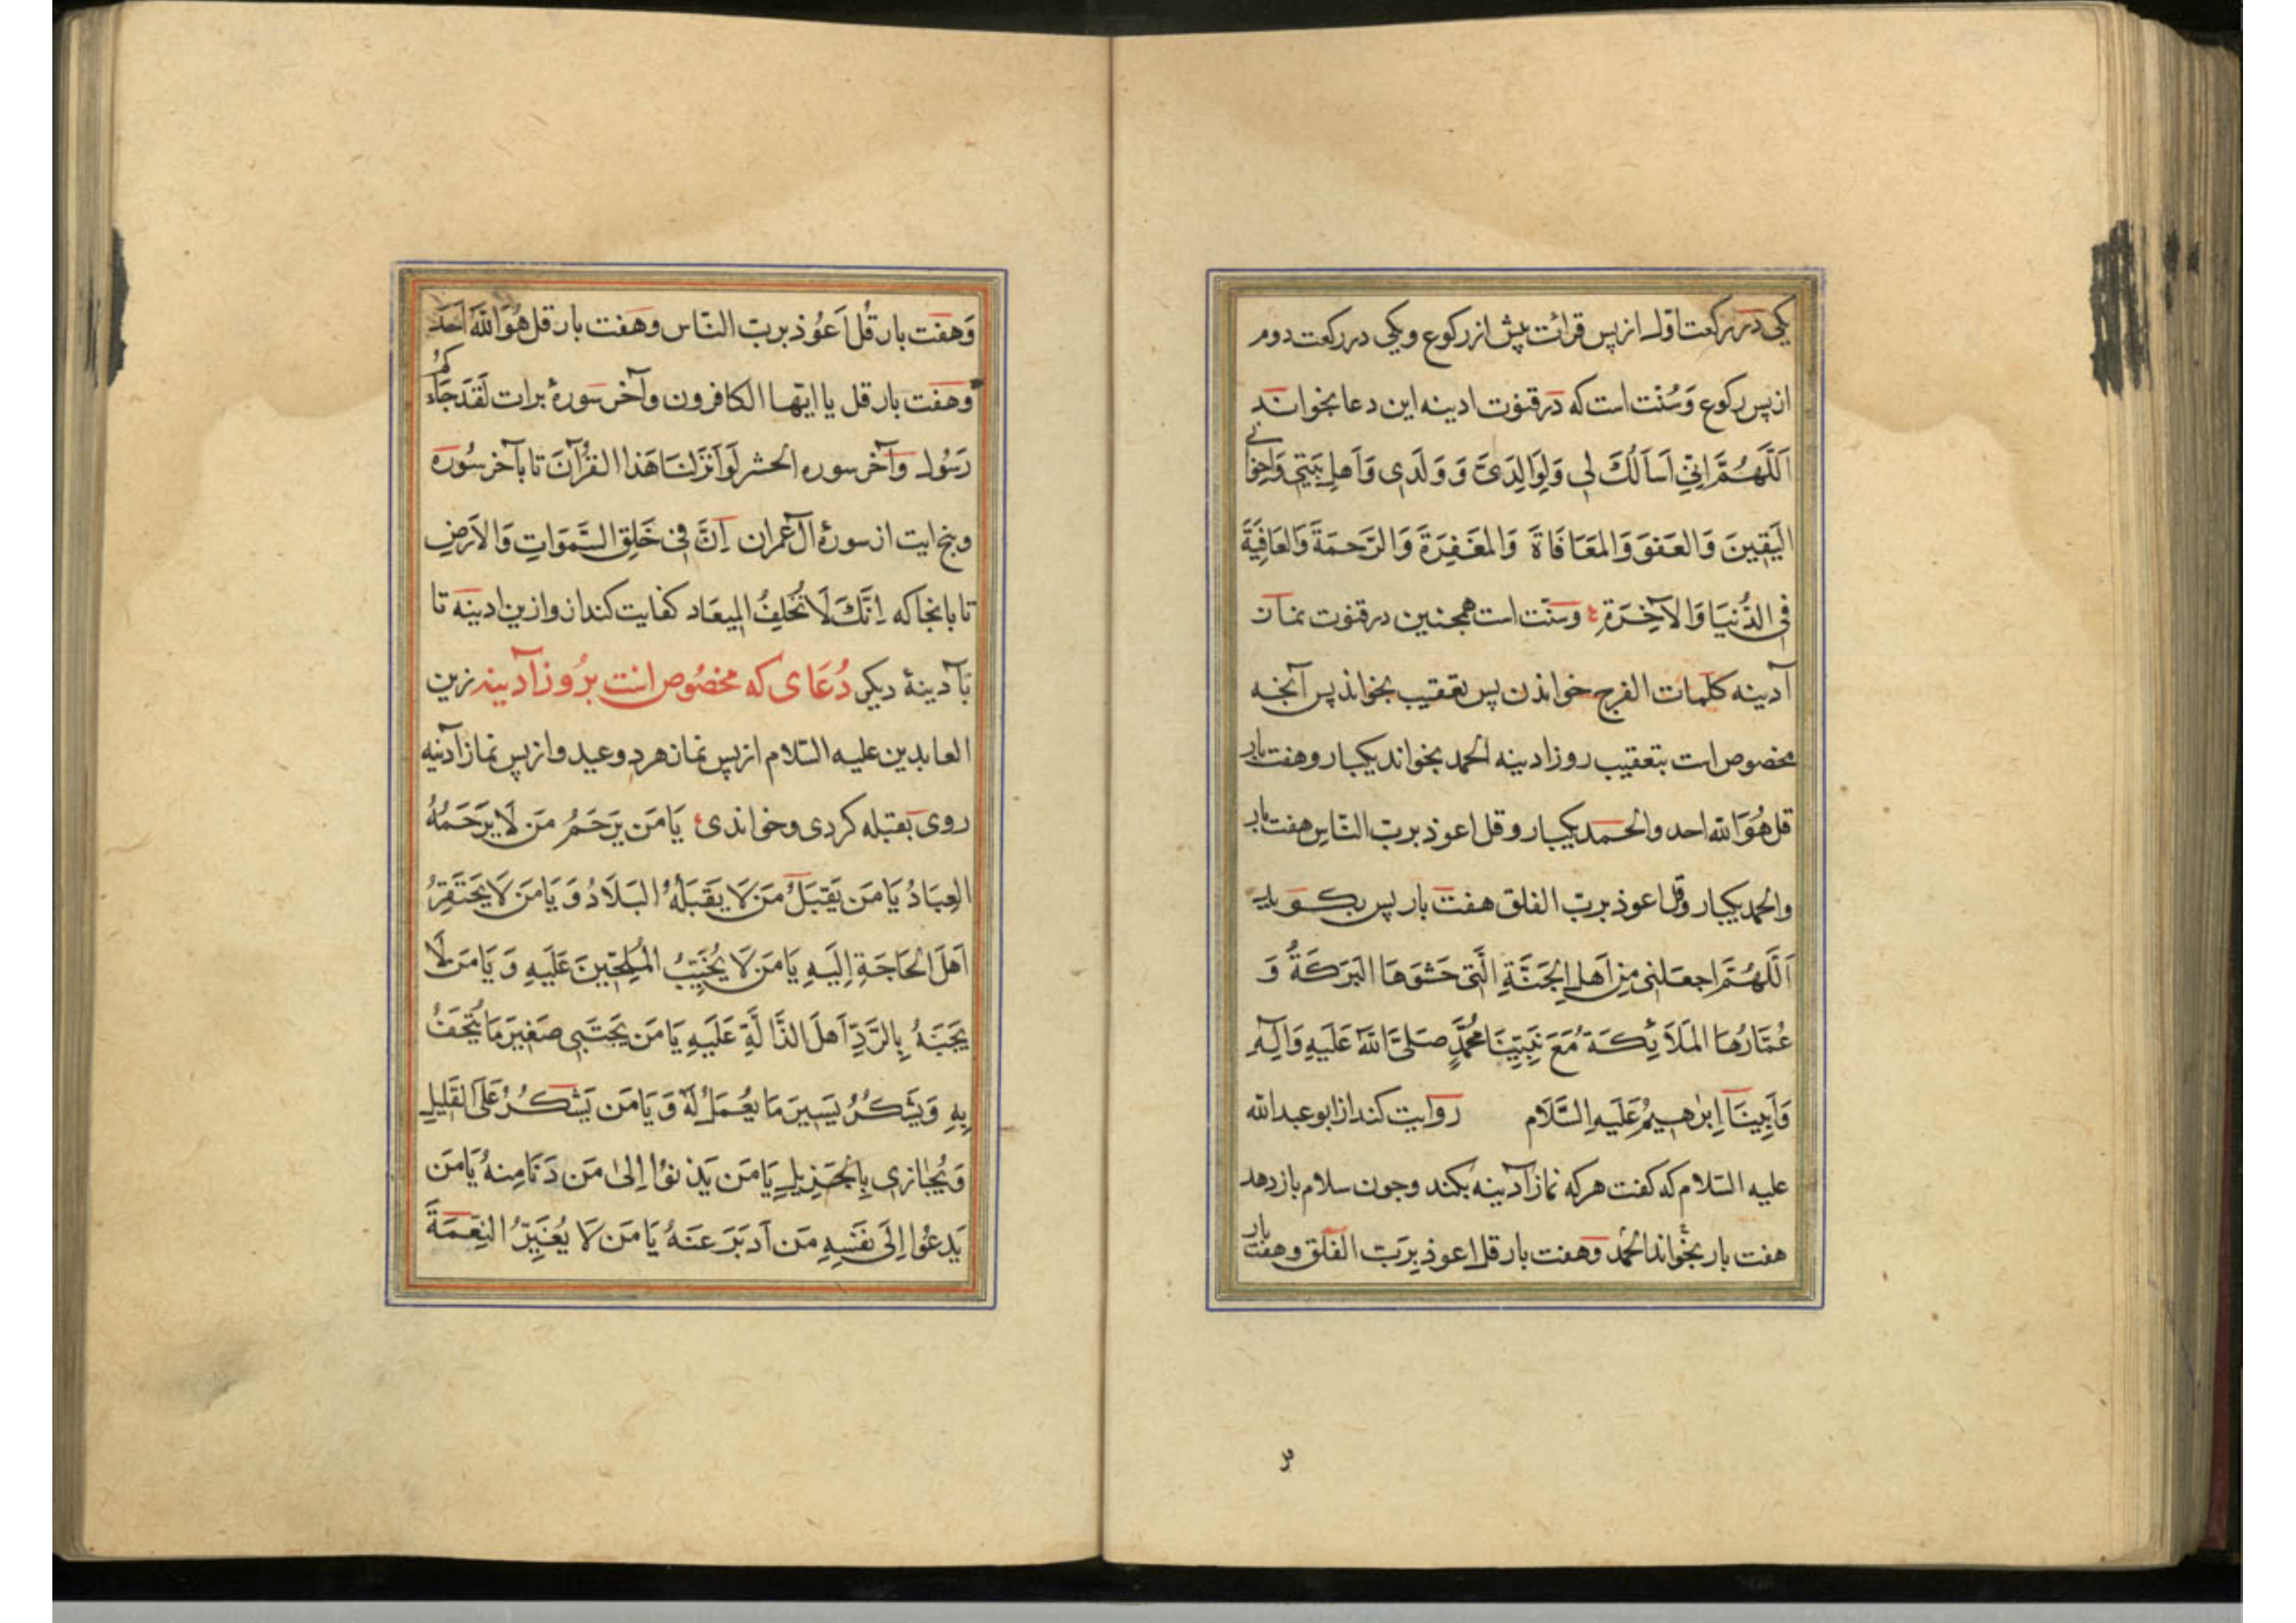 یکی در رکعت اول از پس قرائت پیش از رکوع و یکی در رکعت دوم
از پس رکوع وَسُنّت است که در قنوت ادینه این دعا بخواند
اَللّهُمَّ اِنّی اَساَلُكَ لی وَلِوَالِدَیَّ وَ وَلَدی وَاَهلِ بَیتی وَاِخوَانی
الیَقینَ وَالعَفوَ وَالمعَافَاةَ وَالمَغفِرَةَ وَالرَّحمَةَ وَالعَافِیَةَ
فی الدُّنیَا وَالآخِرَةِ وسنّت است همجنین در قنوت نماز
آدینه کلمات الفرج خواندن پس تعقیب بخواند پس آنجه
مخصوص است بتعقیب روز ادینه الحمد بخواند یکبار و هفت بار
قل هُوَ الله احد والحمد یکبار و قل اعوذ بربّ النّاس هفت بار
والحمد یکبار وقل اعوذ بربّ الفلق هفت بار پس بکوید
اَللّهُمَّ اجعَلنی مِن اَهلِ الجَنَّةِ الَّتی حَشوَهَا البَرَکَةُ وَ
عُمَّارُهَا المَلَائِکَةُ مَعَ نَبِیِّنَا مُحَمَّدٍ صَلَّی اللّهُ عَلَیهِ وَآلِهِ
وَاَبِینَا اِبرٰهِیمُ عَلَیهِ السَّلَام روایت کند از ابو عبدالله
علیه السّلام که کفت هر که نماز آدینه بکند وجون سلام باز دهد
هفت بار بخواند الحمد وهفت بار قل اعوذ بِربّ الفلق وهفت بار
۳
وَهفت بار قُل اَعُوذ بربّ النّاس وهفت بار قل هُوَ اللّهُ اَحَد
وَهفت بار قل یا ایّها الکافرون وآخر سورهٔ برات لَقَد جَاءَکُم
رَسُول وآخر سوره الحشر لَو اَنزَلنَا هَذا القُرآنَ تا بآخر سُوره
وپنج ایت از سورهٔ آل عمران اِنَّ فی خَلقِ السَّمَوَاتِ وَالاَرضِ
تا بانجا که اِنَّكَ لَا تُخلِفُ المیعَاد کفایت کند از و ازین ادینه تا
بَآدینهٔ دیکر دُعَای که مخصُوص است برُوز آدینه زین
العابدین علیه السّلام از پس نماز هر دو عید و از پس نماز آدینه
روی بقبله کردی وخواندی یَا مَن یَرحَمُ مَن لَا یَرحَمُهُ
العِبَادُ یَا مَن یَقبَلُ مَن لَا یَقبَلُهُ البَلَادُ وَ یَا مَن لَا یَحتَقِرُ
اَهلَ الحَاجَةِ اِلَیهِ یَا مَن لَا یُخَیِّبُ المُلِحّینَ عَلَیهِ وَ یَا مَن لَا
یَجبَهُ بِالرَّدِّ اَهلَ الدَّالَّةِ عَلَیهِ یَا مَن یَجتَبی صَغِیرَ مَا یُتحَفُ
بِهِ وَیَشکُرُ یَسِیرَ مَا یعُمَلُ لَهُ وَ یَا مَن یَشکُرُ عَلَی القَلِیلِ
وَیُجَازِی بِالجَزِیلِ یَا مَن یَدنوُا اِلیٰ مَن دَنَا مِنهُ یَا مَن
یَدعُوا اِلَی نَفسِهِ مَن اَدبَرَ عَنهُ یَا مَن لَا یُغَیِّرُ النِّعمَةَ